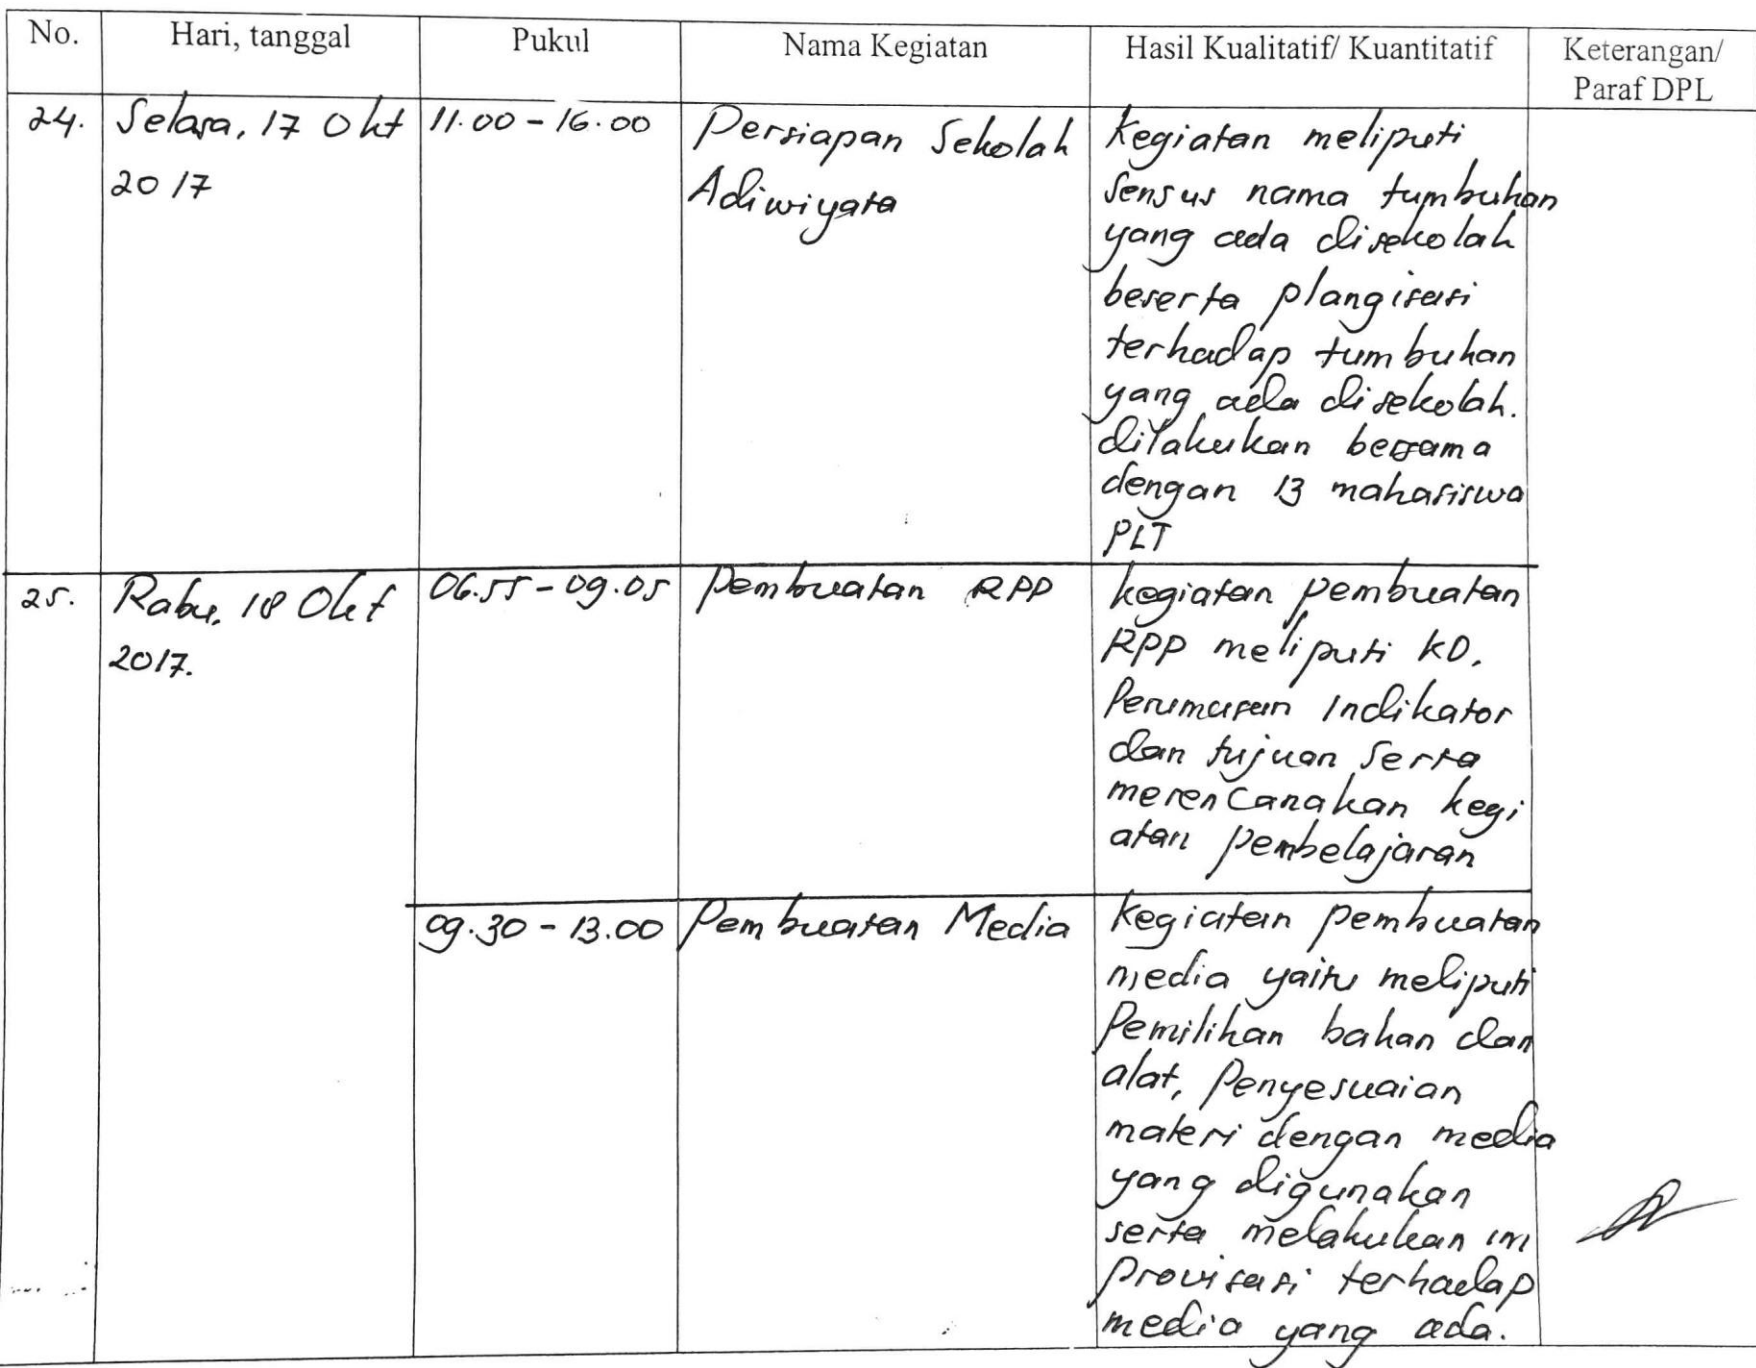 No. Hari, tanggal Pukul Nama Kegiatan Hasil Kualitatif/ Kuantitatif Keterangan/
Paraf DPL
24. Selasa, 17 Okt 2017
11.00 - 16.00
Persiapan Sekolah
Adiwiyata
kegiatan meliputi
sensus nama tumbuhan
yang ada disekolah
beserta plangisasi
terhadap tumbuhan
yang ada disekolah.
dilakukan bersama
dengan 13 mahasiswa
PLT
25. Rabu, 18 Okt
2017.
06.55 - 09.05
Pembuatan RPP
kegiatan pembuatan
RPP meliputi KD,
Perumusan Indikator
dan tujuan serta
merencanakan kegi
atan pembelajaran
09.30 - 13.00
Pembuatan Media
kegiatan pembuatan
media yaitu meliputi
Pemilihan bahan dan
alat, Penyesuaian
materi dengan media
yang digunakan
serta melakukan im
provisasi terhadap
media yang ada.